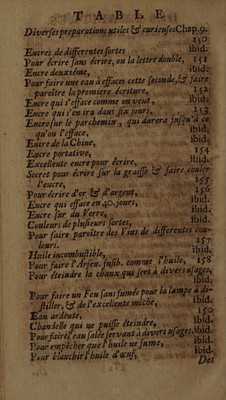 TABLE
Diverses preparations utiles & curieuses Chap. 9.
150
Encres de differentes sortes ibid.
Pour écrire sans écrire, ou la lettre double, 151
Encre deuxiéme, ibid.
Pour faire une eau à effaces cette seconde, & faire
paroître la premiere écriture, 152
Encre qui s'efface comme on veut, ibid.
Encre qui s'en ira dans six jours, 153
Encre sur le parchemin, qui durera jusqu'à ce
qu'on l'efface, ibid.
Encre de la Chine, ibid.
Encre portative, 154
Excellente encre pour écrire, ibid.
Secret pour écrire sur la graisse & faire couler
l'encre, 155
Pour écrire d'or & d'argent, 156
Encre qui efface en 40. jours, ibid.
Encre sur du Verre, ibid.
Couleurs de plusieurs sortes, ibid.
Pour faire paroître des Vins de differentes cou-
leurs. 157
Huile incombustible, ibid.
Pour faire l'Arsen. fusib. comme l'huile, 158
Pour éteindre la chaux qui sert à divers usages,
ibid.
Pour faire un Feu sans fumée pour la lampe à di-
stiller, & de l'excellente méche, ibid.
Eau ardente, 150
Chandelle qui ne puisse éteindre, ibid.
Pour faire l'eau salée servant à divers usages. ibid.
Pour empêcher que l'huile ne fume, ibid.
Pour blanchir l'huile d'œuf, ibid.
Del